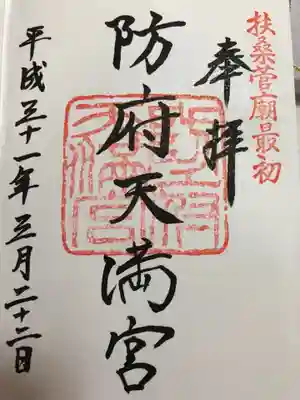 扶桑菅廟最初
奉拝
防府天満宮
平成三十一年三月二十二日